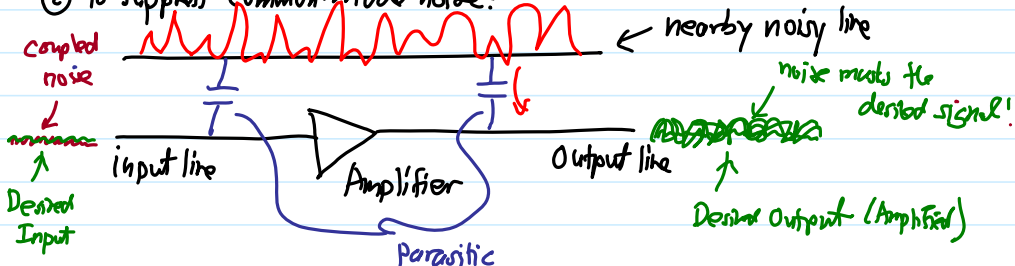 © to suppress common-mode noise!
nearby noisy line
coupled
noise
noise masks the
desired signal!
input line
Amplifier
Output line
Desired
Input
Desired Output (Amplified)
Parasitic